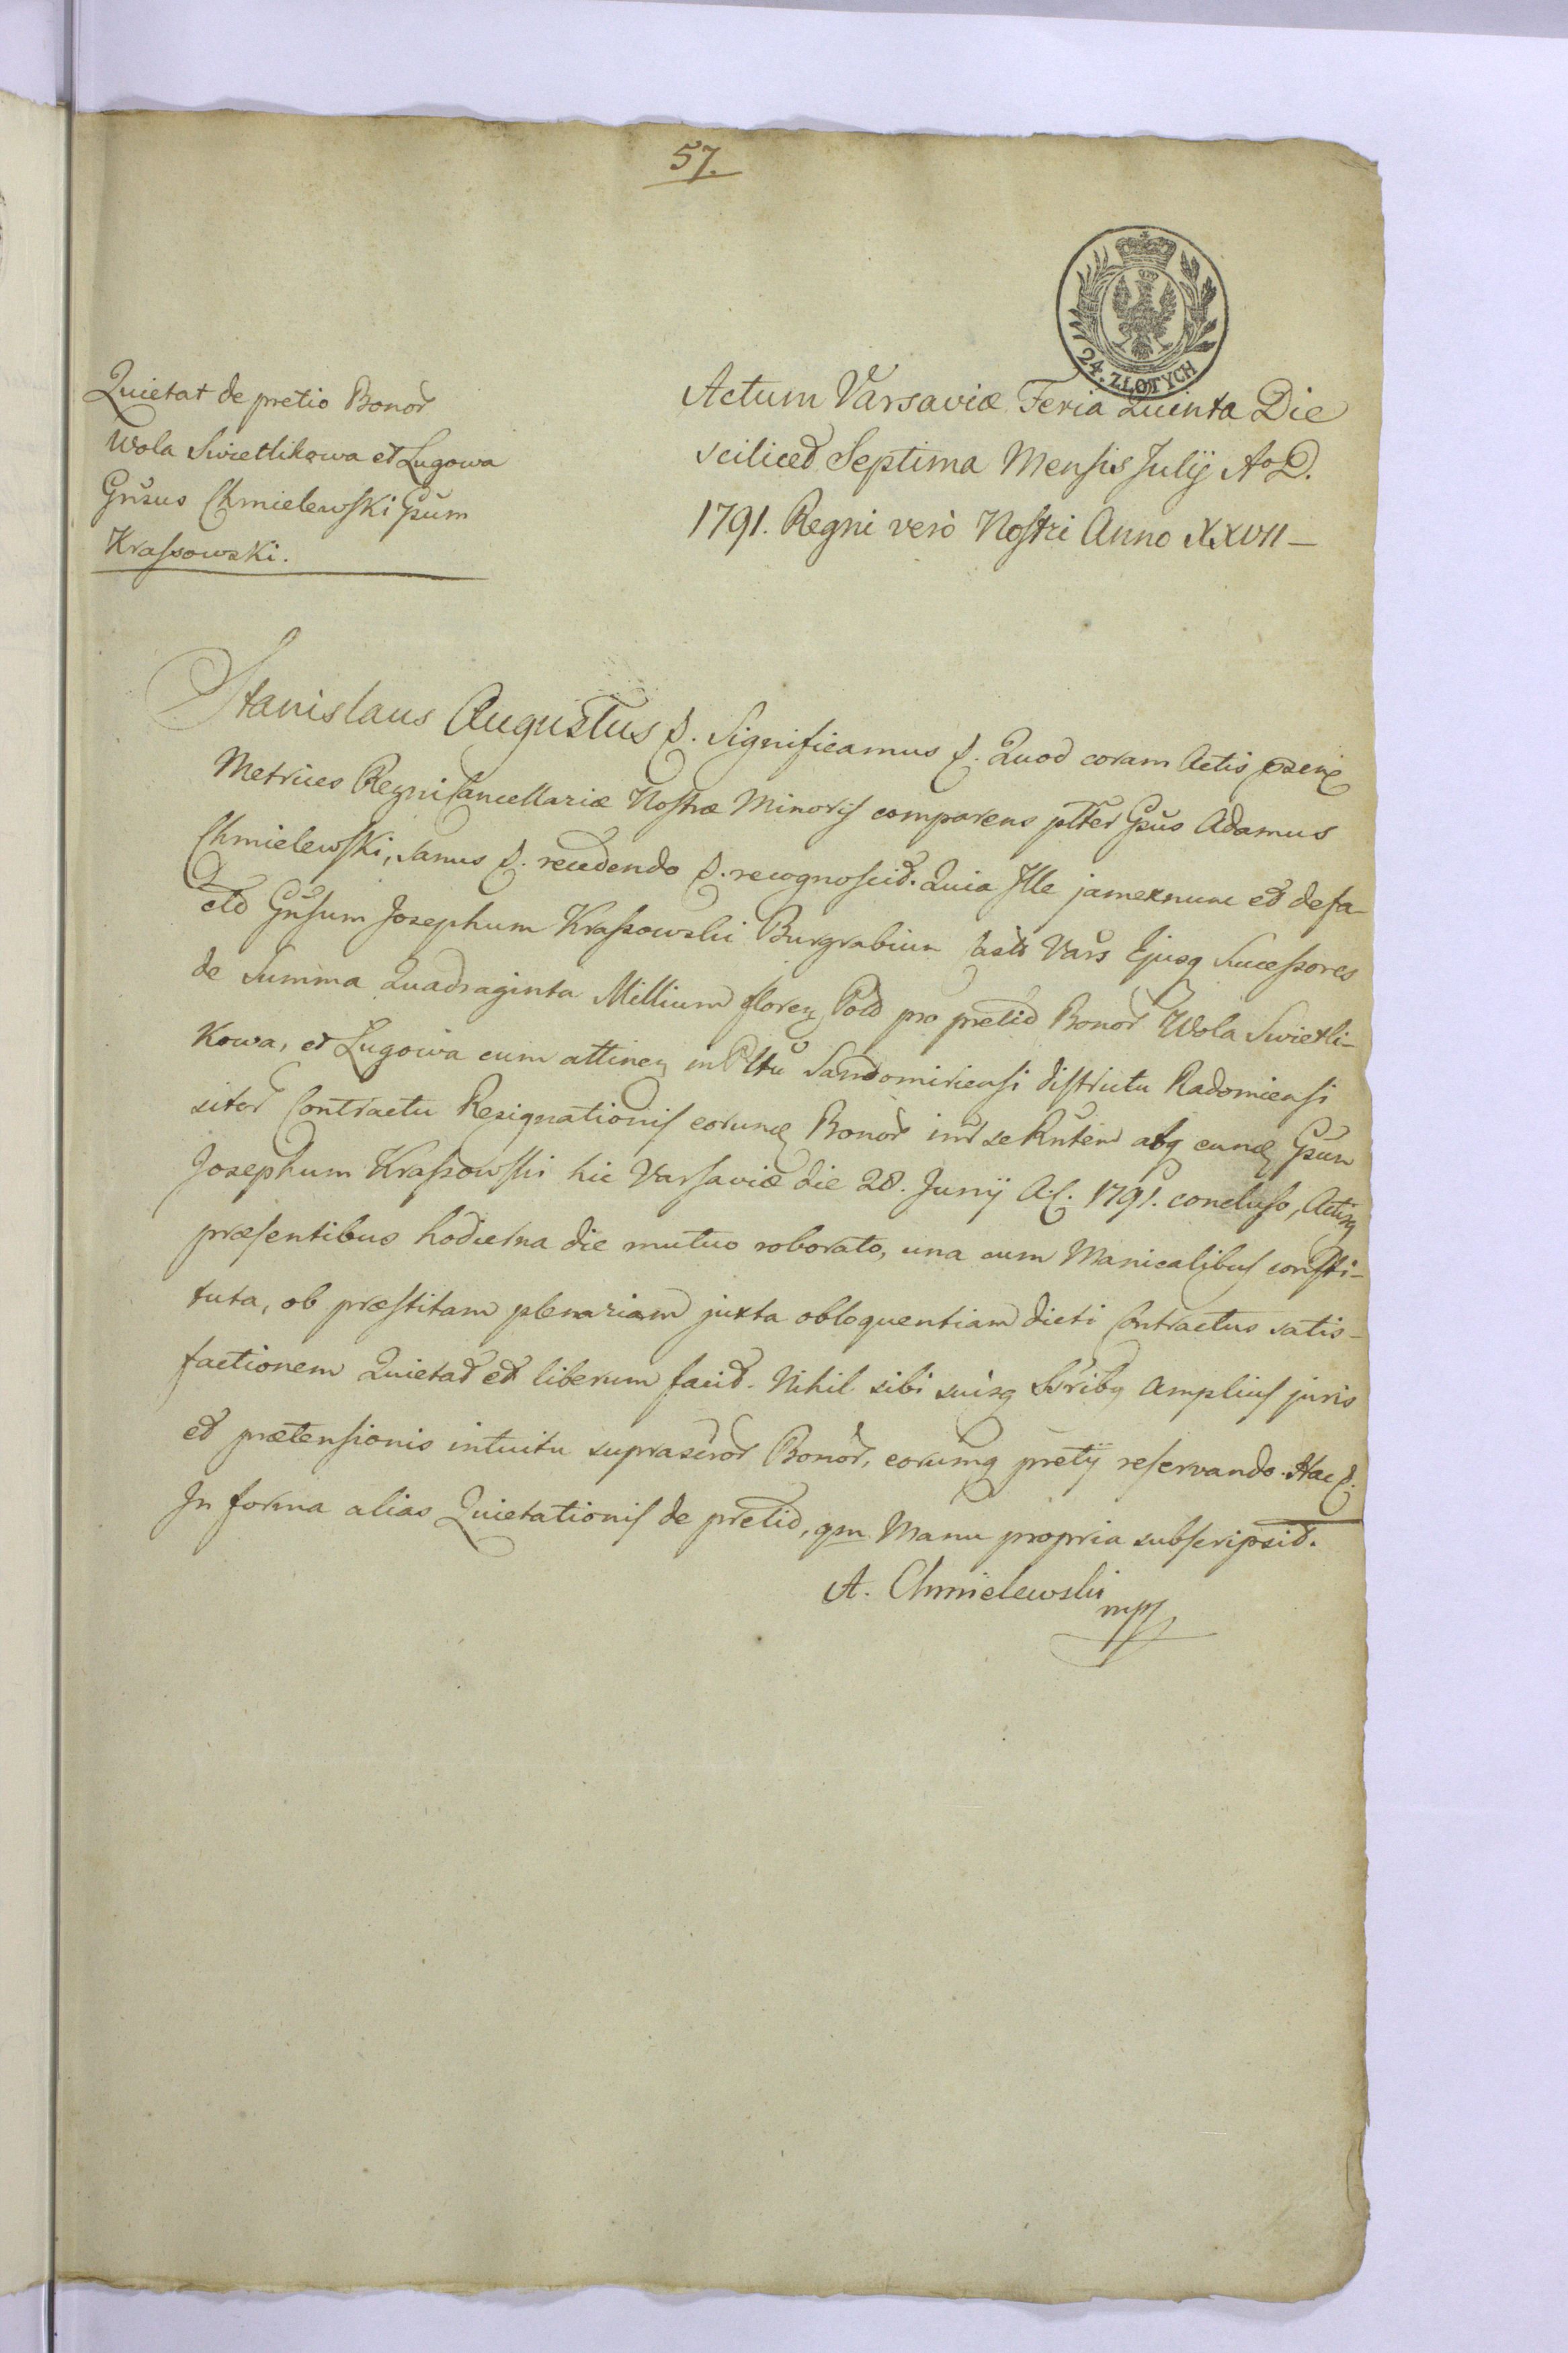 57.
24. ZŁOTYCH
Quietat de pretio Bonor
Wola Swietlikowa et Lugowa
Gnsus Chmielewski Gsum
Krassowski.
Actum Varsaviæ Feria Quinta Die
scilicet Septima Mensis Julij Ao D.
1791. Regni verò Nostri Anno XXVII—
Stanislaus Augustus &. Significamus &. Quod coram Actis
Metrices Regni Cancellariæ Nostræ Minoris comparens pltter Gsus Adamus
Chmielewski, sanus &. recedendo &. recognoscit. Quia Ille jam ex nunc et de fa-
cto Gnsum Josephum Krassowski Burgrabium Vars Ejusq Successores
de Summa Quadraginta Millium floren Pold pro pretio Bonor Wola Swietli-
kowa, et Lugowa cum attinen in Pltu Sandomiriensi districtu Radomiensi
siter Contractu Resignationis eorund Bonor intr se Rntem atq eund Gsum
Josephum Krassowski hic Varsaviæ die 28. Junij A. C. 1791. concluso, Actisq
præsentibus hodierna die mutuo roborato, una cum Manicalibus consti-
tuta, ob præstitam plenariam juxta obloquentiam dicti Contractus satis-
factionem Quietat et liberum facit. Nihil sibi suisq Ssribq amplius juris
et prætensionis intuitu suprascror Bonor, eorumq pretij reservando. Hac &.
In forma alias Quietationis de pretio, qm Manu propria subscripsit.
A. Chmielewski
mpp